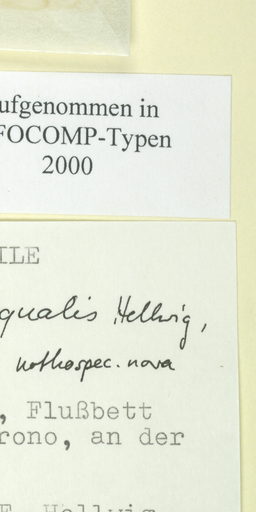 ufgenommen in
FOCOMP-Typen
2000
ILE
qualis Hellwig,
nothospec. nova
, Flußbett
rono, an der
F. Hellwig